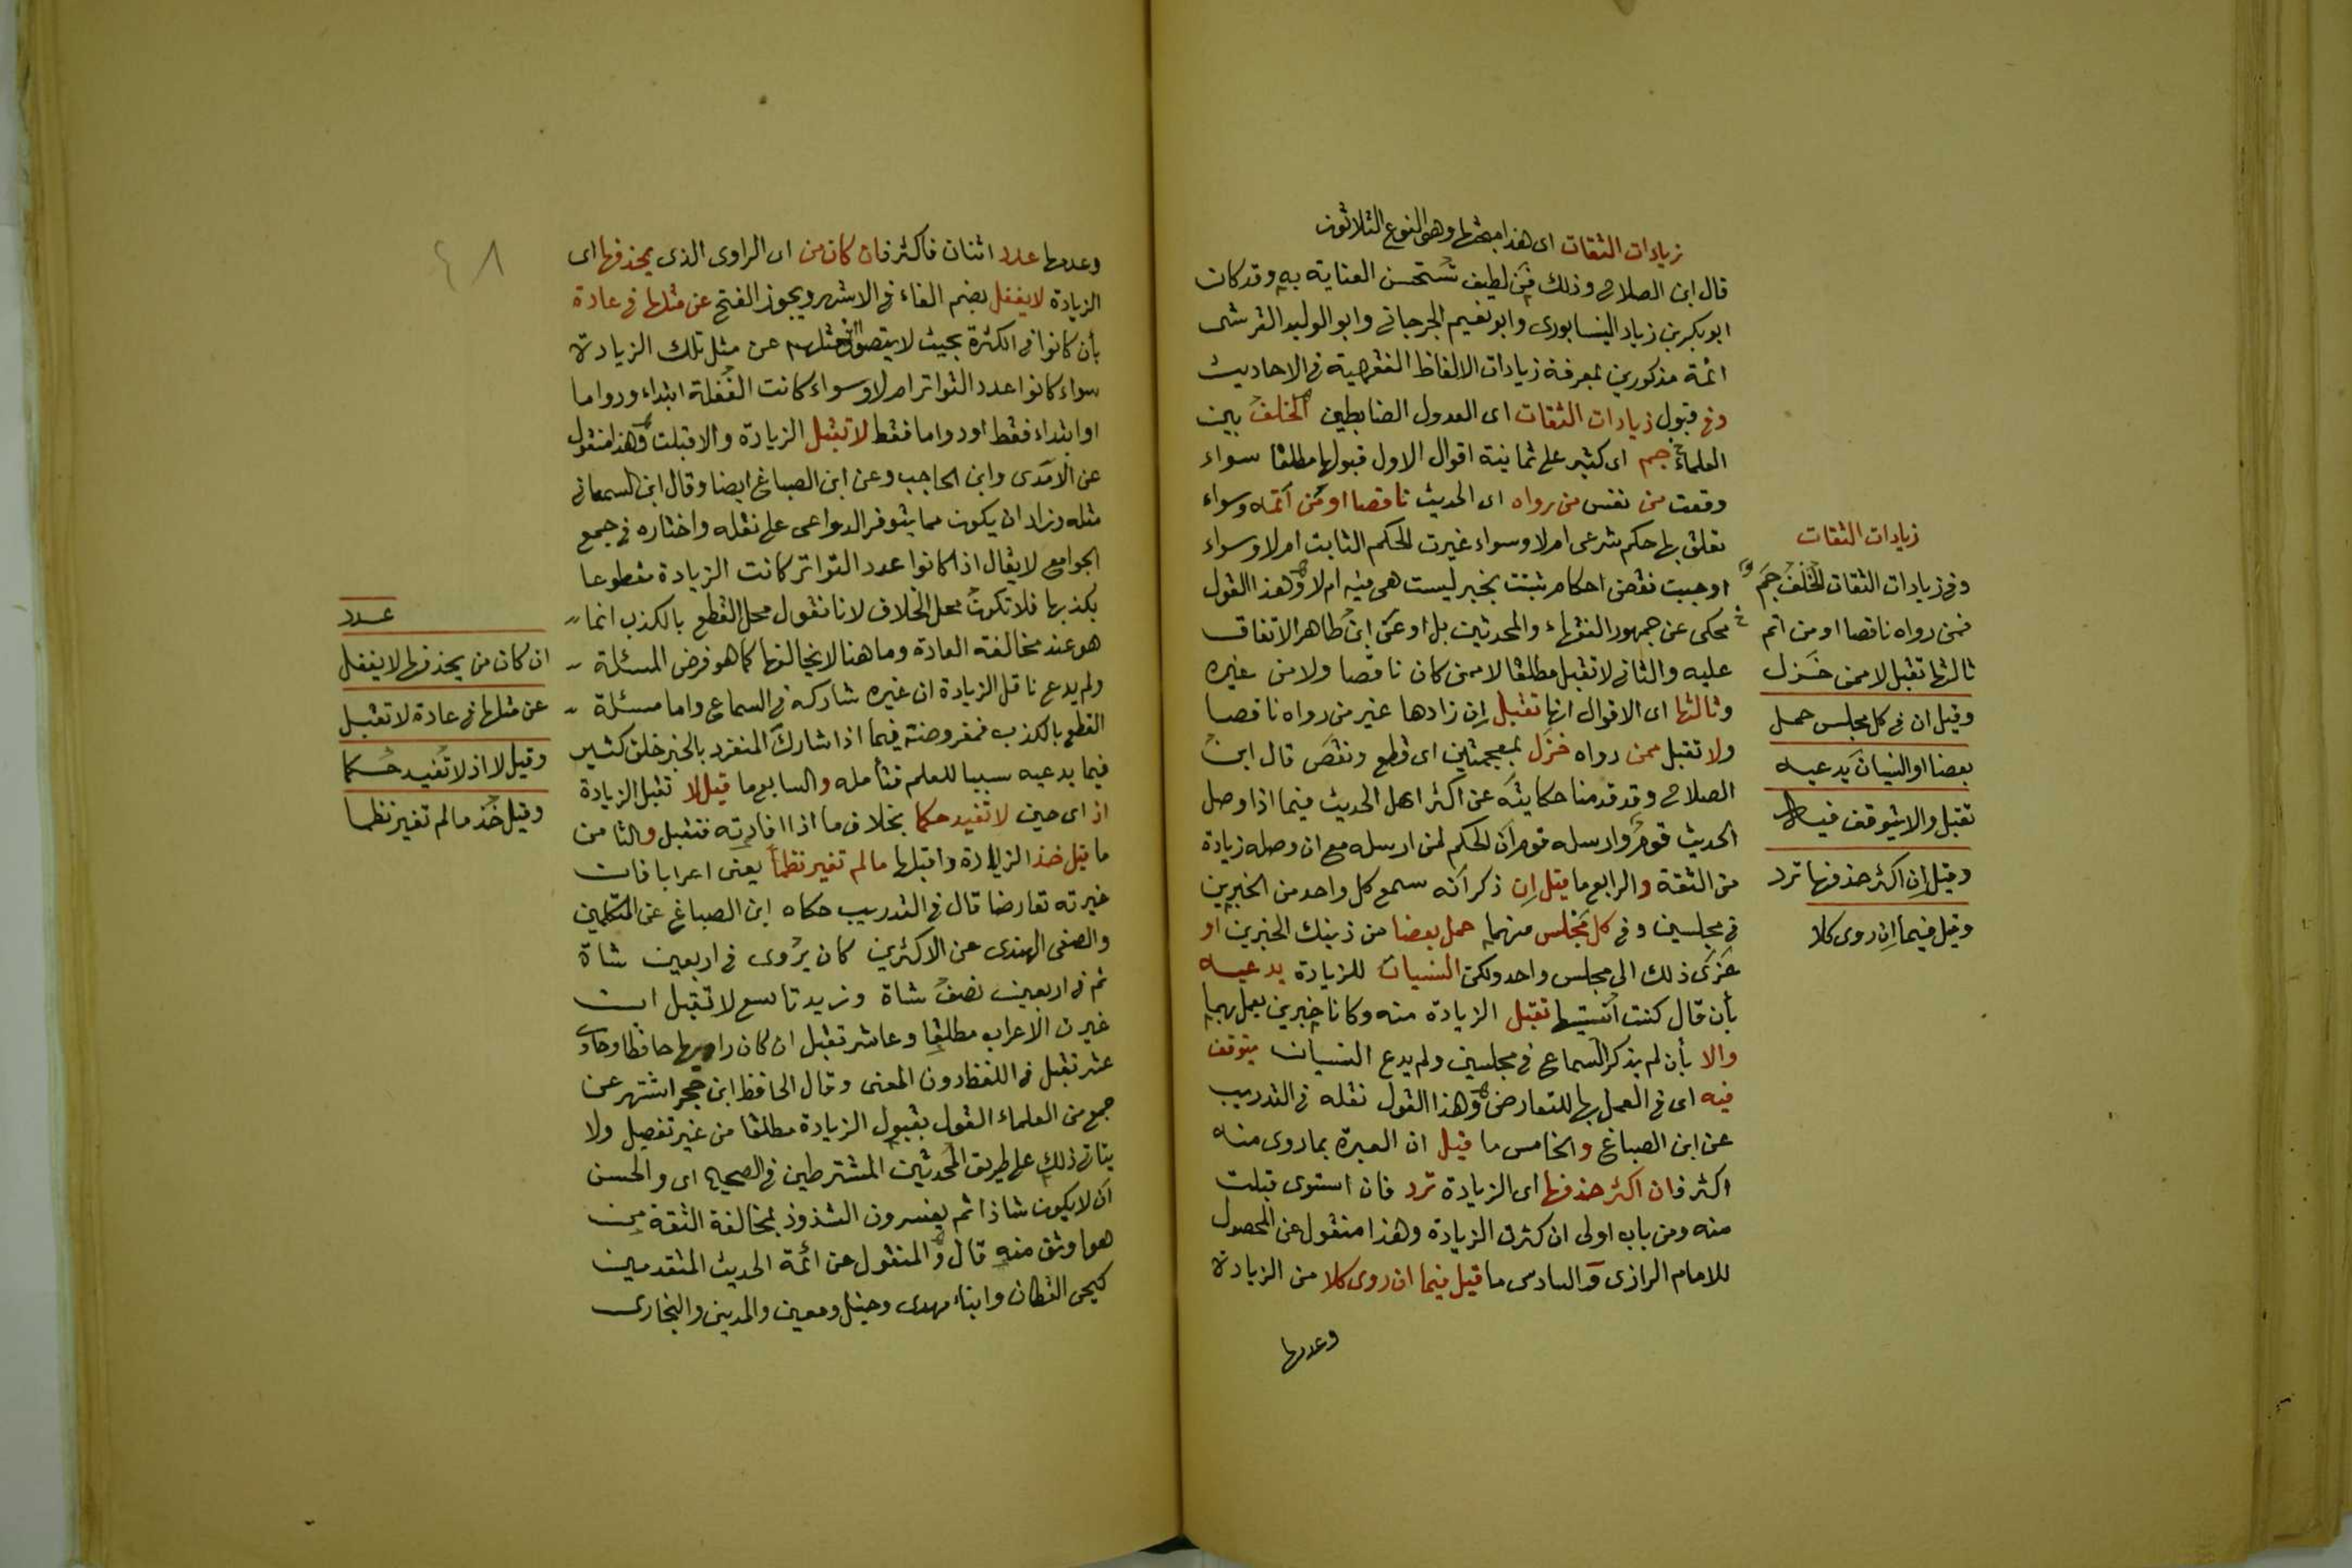 زيادات الثقات اى هذا مبحثها وهو النوع الثلاثون
قال ابن الصلاح وذلك فن لطيف تستحسن العناية به وقد كان
ابو بكر بن زياد النيسابورى وابو نعيم الجرجانى وابو الوليد القرشى
ائمة مذكورين بمعرفة زيادات الالفاظ الفقهية فى الاحاديث
وفى قبول زيادات الثقات اى العدول الضابطين الخلف بين
العلماء جم اى كثير على ثمانية اقوال الاول قبولها مطلقا سواء
وقعت من نفس من رواه اى الحديث ناقصا او من اتمه وسواء
تعلق بها حكم شرعى ام لا وسواء غيرت الحكم الثابت ام لا وسواء
اوجبت نقض احكام ثبتت بخبر ليست هى فيه ام لا وهذا القول
محكى عن جمهور الفقهاء والمحدثين بل ادعى ابن طاهر الاتفاق
عليه والثانى لا تقبل مطلقا لا ممن كان ناقصا ولا من غيره
وثالثها اى الاقوال انها تقبل ان زادها غير من رواه ناقصا
ولا تقبل ممن رواه خزل بمعجمتين اى قطع ونقص قال ابن
الصلاح وقد قدمنا حكايته عن اكثر اهل الحديث فيما اذا وصل
الحديث قوم وارسله قوم ان الحكم لمن ارسله مع ان وصله زيادة
من الثقة والرابع ما قيل ان ذكر انه سمع كل واحد من الخبرين
فى مجلسين وفى كل مجلس منهما حمل بعضا من ذينك الخبرين او
عزى ذلك الى مجلس واحد ولكن النسيان للزيادة يدعيه
بأن قال كنت انسيتها تقبل الزيادة منه وكانا خبرين يعمل بهما
والا بأن لم يذكر السماع فى مجلسين ولم يدع النسيان يتوقف
فيه اى فى العمل بها للتعارض وهذا القول نقله فى التدريب
عن ابن الصباغ والخامس ما قيل ان العبرة بما روى منه
اكثر فان اكثر حذفها اى الزيادة ترد فان استوى قبلت
منه ومن باب اولى ان كثرت الزيادة وهذا منقول عن المحصول
للامام الرازى والسادس ما قيل فيما ان روى كلا من الزيادة
وعدمها
زيادات الثقات
وفى زيادات الثقات الخلف جم
فمن رواه ناقصا او من اتم
ثالثها تقبل لا ممن خزل
وقيل ان فى كل مجلس حمل
بعضا او النسيان يدعيه
تقبل والا يتوقف فيه
وقيل ان اكثر حذفها ترد
وقيل فيما ان روى كلا
٤٨
وعدمها عدد اثنان فاكثر فان كان من اى الراوى الذى يحذفها اى
الزيادة لا يغفل بضم الفاء فى الاشهر ويجوز الفتح عن مثلها فى عادة
بأن كانوا فى الكثرة بحيث لا يتصور مثلهم عن مثل تلك الزيادة
سواء كانوا عدد التواتر ام لا وسواء كانت الغفلة ابتداء ودواما
او ابتداء فقط او دواما فقط لا تقبل الزيادة والا قبلت وهذا منقول
عن الآمدى وابن الحاجب وعن ابن الصباغ ايضا وقال ابن السمعانى
مثله وزاد ان يكون مما يتوفر الدواعى على نقله واختاره فى جمع
الجوامع لا يقال اذا كانوا عدد التواتر كانت الزيادة مقطوعا
بكذبها فلا تكون محل الخلاف لانا نقول محل القطع بالكذب انما
هو عند مخالفة العادة وما هنا لا يخالفها كما هو فرض المسئلة
ولم يدع ناقل الزيادة ان غيره شاركه فى السماع واما مسئلة
القطع بالكذب فمفروضة فيما اذا شارك المنفرد بالخبر خلق كثير
فيما يدعيه سببا للعلم فتأمله والسابع ما قيل لا تقبل الزيادة
اذ اى حين لا تفيد حكما بخلاف ما اذا افادته فتقبل والثامن
ما قيل خذ الزيادة واقبلها ما لم تغير نظما يعنى اعرابا فان
غيرته تعارضا قال فى التدريب حكاه ابن الصباغ عن المتكلمين
والصفى الهندى عن الاكثرين كان يروى فى اربعين شاة
ثم فى اربعين نصف شاة وزيد تاسع لا تقبل ان
غيرت الاعراب مطلقا وعاشر تقبل ان كان راويها حافظا وحادى
عشر تقبل فى اللفظ دون المعنى وقال الحافظ ابن حجر اشتهر عن
جمع من العلماء القول بقبول الزيادة مطلقا من غير تفصيل ولا
يتاتى ذلك على طريق المحدثين المشترطين فى الصحيح اى والحسن
ان لا يكون شاذا ثم يفسرون الشذوذ بمخالفة الثقة من
هو اوثق منه قال والمنقول عن ائمة الحديث المتقدمين
كيحى القطان وابناء مهدى وحنبل ومعين والمدينى والبخارى
عدد
ان كان من يحذفها لا يغفل
عن مثلها فى عادة لا تقبل
وقيل لا اذ لا تفيد حكما
وقيل خذ ما لم تغير نظما